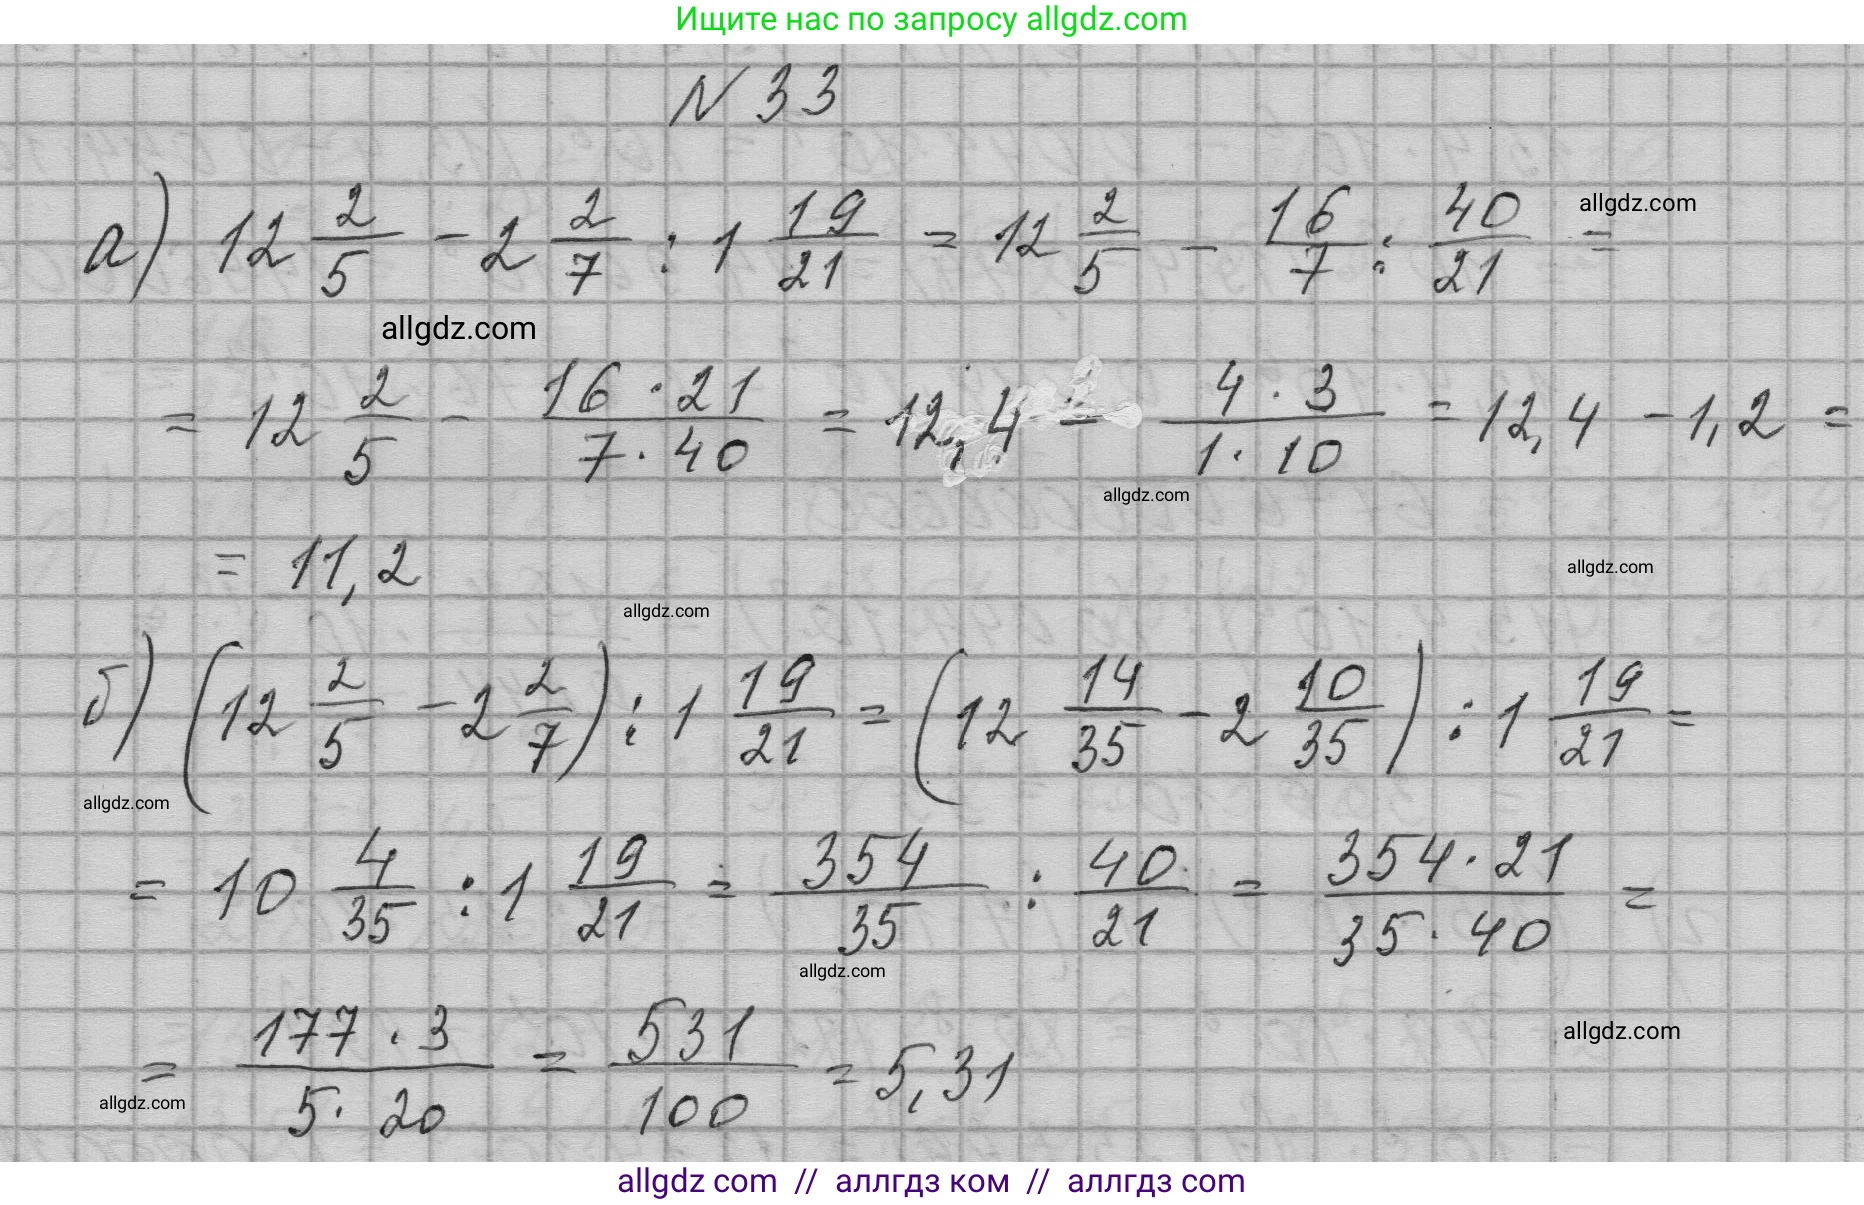 Ищите нас по запросу allgdz.com
N 33
а) 12 2/5 - 2 2/7 : 1 19/21 = 12 2/5 - 16/7 : 40/21 =
allgdz.com
allgdz.com
= 12 2/5 - 16 · 21/7 · 40 = 12,4 - 4 · 3/1 · 10 = 12,4 - 1,2 =
allgdz.com
= 11,2
allgdz.com
allgdz.com
б) (12 2/5 - 2 2/7) : 1 19/21 = (12 14/35 - 2 10/35) : 1 19/21 =
allgdz.com
= 10 4/35 : 1 19/21 = 354/35 : 40/21 = 354 · 21/35 · 40 =
allgdz.com
allgdz.com
= 177 · 3/5 · 20 = 531/100 = 5,31
allgdz.com
allgdz com // аллгдз ком // аллгдз com